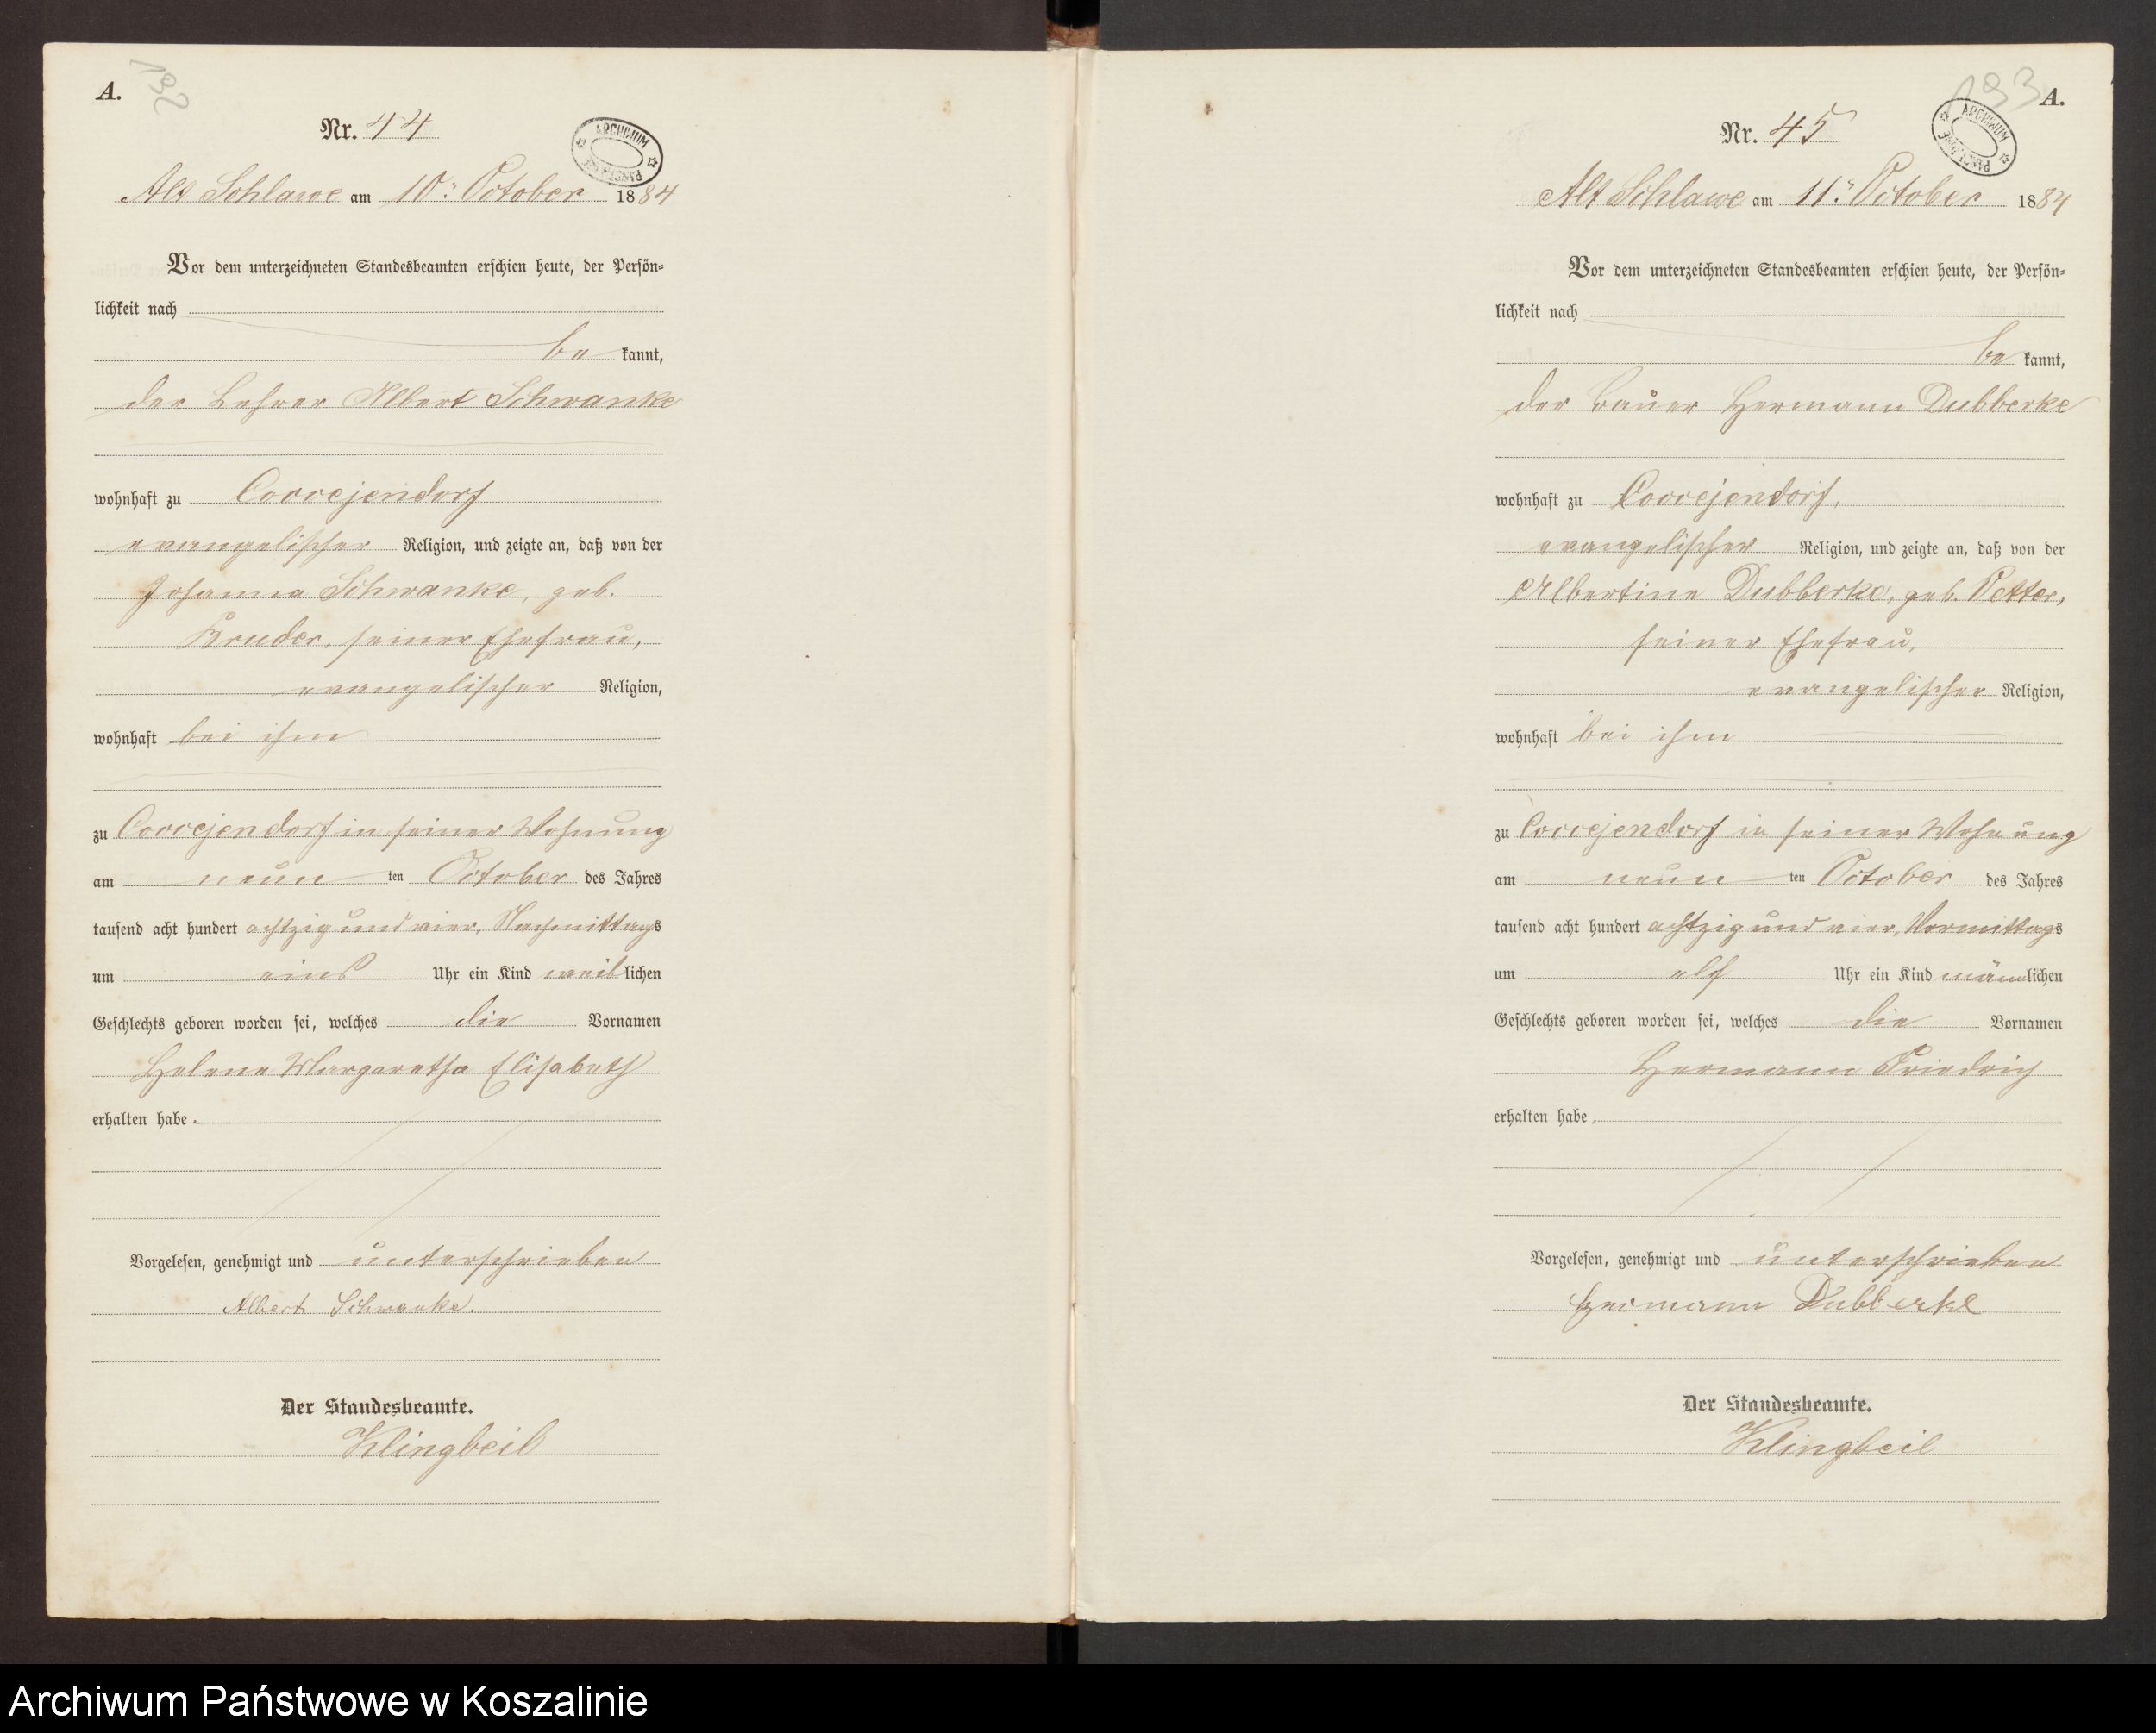 A.
192
Nr. 44
ARCHIWUM
Alt Schlawe am 10. October 1884
Vor dem unterzeichneten Standesbeamten erschien heute, der Persön-
lichkeit nach
be kannt,
der Lehrer Albert Schwanke
wohnhaft zu Coccejendorf
evangelischer Religion, und zeigte an, daß von der
Johanna Schwanke, geb.
Kruder, seiner Ehefrau,
evangelischer Religion,
wohnhaft bei ihm
zu Coccejendorf in seiner Wohnung
am neun ten October des Jahres
tausend acht hundert achtzig und vier, Nachmittags
um eins Uhr ein Kind weiblichen
Geschlechts geboren worden sei, welches die Vornamen
Helene Margaretha Elisabeth
erhalten habe.
Vorgelesen, genehmigt und unterschrieben
Albert Schwanke.
Der Standesbeamte.
Klingbeil
193
A.
Nr. 45
ARCHIWUM
Alt Schlawe am 11. October 1884
Vor dem unterzeichneten Standesbeamten erschien heute, der Persön-
lichkeit nach
be kannt,
der Bauer Hermann Dubberke
wohnhaft zu Coccejendorf,
evangelischer Religion, und zeigte an, daß von der
Albertine Dubberke, geb. Vetter,
seiner Ehefrau,
evangelischer Religion,
wohnhaft bei ihm
zu Coccejendorf in seiner Wohnung
am neun ten October des Jahres
tausend acht hundert achtzig und vier, Vormittags
um elf Uhr ein Kind männlichen
Geschlechts geboren worden sei, welches die Vornamen
Hermann Friedrich
erhalten habe
Vorgelesen, genehmigt und unterschrieben
Hermann Dubberke
Der Standesbeamte.
Klingbeil
Archiwum Państwowe w Koszalinie